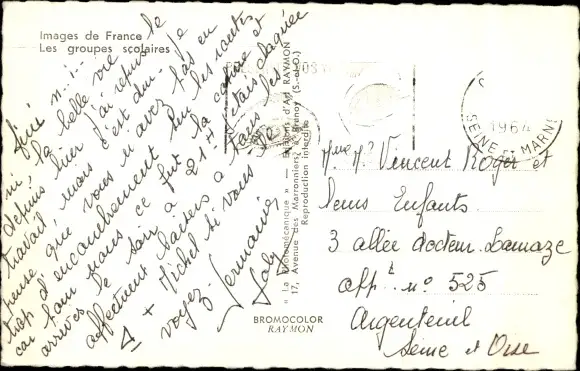 Images de France
Les groupes scolaires
fini n.i.
ni la belle vie le
depuis hier j'ai repris le
travail mais c'est dur. Je
pense que vous n'avez pas eu
trop d'encombrement sur les routes
car pour nous ce fut la cohue et
arrivés le soir à 21H j'étais claquée
affectueux baisers à tous les
4 + Michel si vous le
voyez.
Germaine
Gaby
« La Photomécanique » — Éditions d'Art RAYMON
17, Avenue des Marronniers, Brunoy (S.-&-O.)
Reproduction interdite
BROMOCOLOR
RAYMON
1964
SEINE ET MARNE
Mme Mr Vincent Roger et
leurs Enfants
3 allée docteur Lamaze
appt no 525
Argenteuil
Seine et Oise